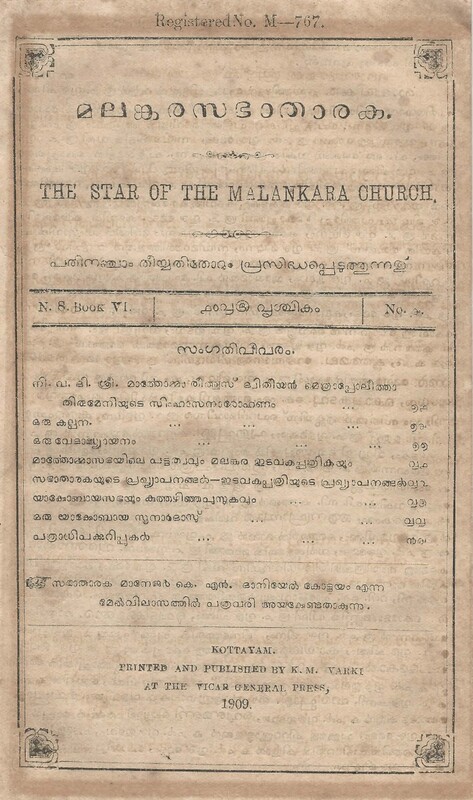 Registered No. M—767.
മലങ്കരസഭാതാരക.
THE STAR OF THE MALANKARA CHURCH.
പതിനഞ്ചാം തീയ്യതിതോറും പ്രസിദ്ധപ്പെടുത്തുന്നത്
N. S. BOOK VI.
വൃശ്ചികം
No.
സംഗതിവിവരം.
നി. വ. ദി. ശ്രീ. മാത്തോമ്മാ തീത്തൂസ് ദ്വിതീയൻ മെത്രാപ്പോലീത്താ
തിരുമേനിയുടെ സിംഹാസനാരോഹണം ... ...
ഒരു കല്പന. ... ... ... ...
ഒരു വേദാധ്യയനം ... ... ...
മാത്തോമ്മാസഭയിലെ പട്ടത്വവും മലങ്കര ഇടവകപത്രികയും
സഭാതാരകയുടെ പ്രഖ്യാപനങ്ങൾ—ഇടവകപത്രിയുടെ പ്രഖ്യാപനങ്ങൾ
യാക്കോബായസഭയും കുത്തടിഞ്ഞപുസ്തകവും ...
ഒരു യാക്കോബായ സുനഹദോസ് ... ...
പത്രാധിപക്കുറിപ്പുകൾ ... ... ...
സഭാതാരക മാനേജർ കെ. എൻ. ദാനിയേൽ കോട്ടയം എന്ന
മേൽവിലാസത്തിൽ പത്രവരി അയക്കേണ്ടതാകുന്നു.
KOTTAYAM.
PRINTED AND PUBLISHED BY K. M. VARKI
AT THE VICAR GENERAL PRESS,
1909.